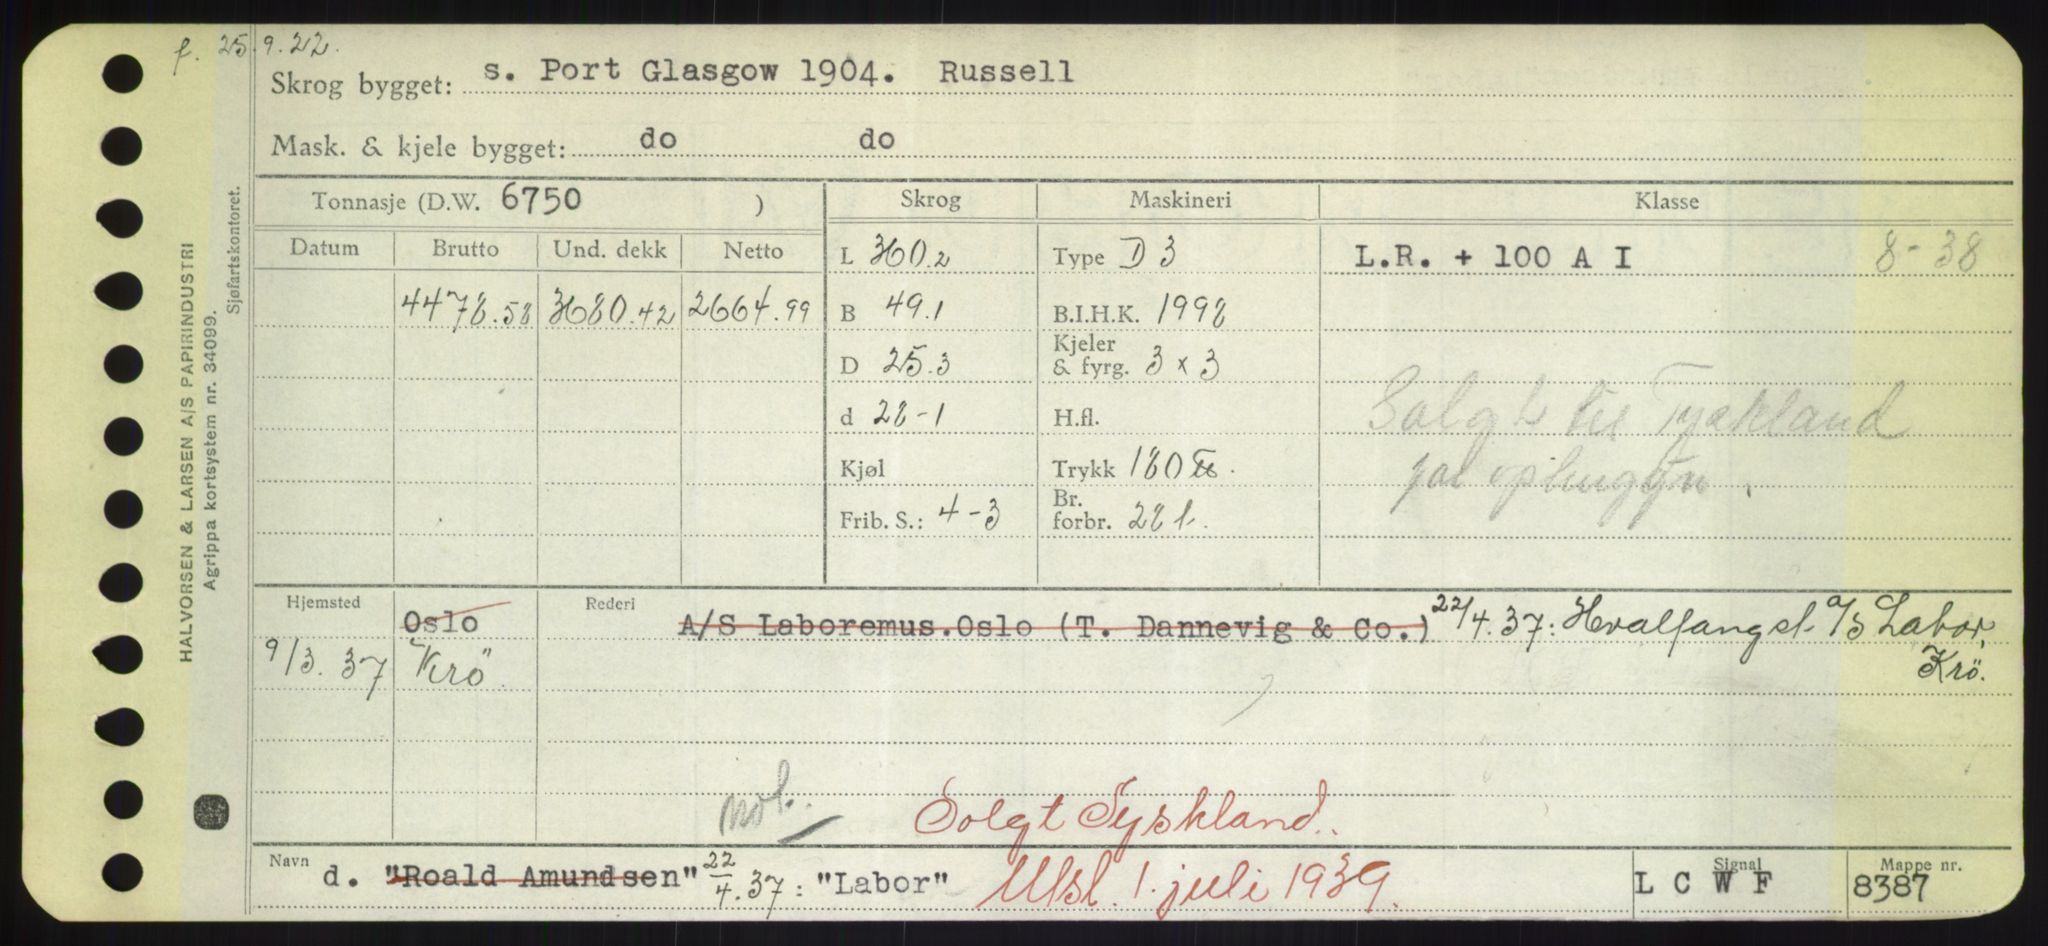 f. 25.9.22.
Skrog bygget: s. Port Glasgow 1904. Russell
Mask. & kjele bygget: do do
HALVORSEN & LARSEN A/S PAPIRINDUSTRI
Agrippa kortsystem nr. 34099.
Sjøfartskontoret.
Tonnasje (D.W. 6750 ) Skrog Maskineri Klasse
Datum Brutto Und. dekk Netto
L 360.2 Type D 3 L.R. + 100 A I 8-38
4478.58 3680.42 2664.99 B 49.1 B.I.H.K. 1998
D 25.3 Kjeler & fyrg. 3 x 3
d 28-1 H.fl. Solgt til Tyskland
Kjøl Trykk 180 lbs.
Frib. S.: 4-3 Br. forbr. 28 t.
Hjemsted Rederi
Oslo A/S Laboremus.Oslo (T. Dannevig & Co.) 22/4.37: Hvalfangst A/S Labor,
9/3.37 "Krö" Krö.
Solgt Tyskland.
Navn d. "Roald Amundsen" 22/4.37: "Labor" Utsl. 1. juli 1939.
Signal L C W F
Mappe nr. 8387